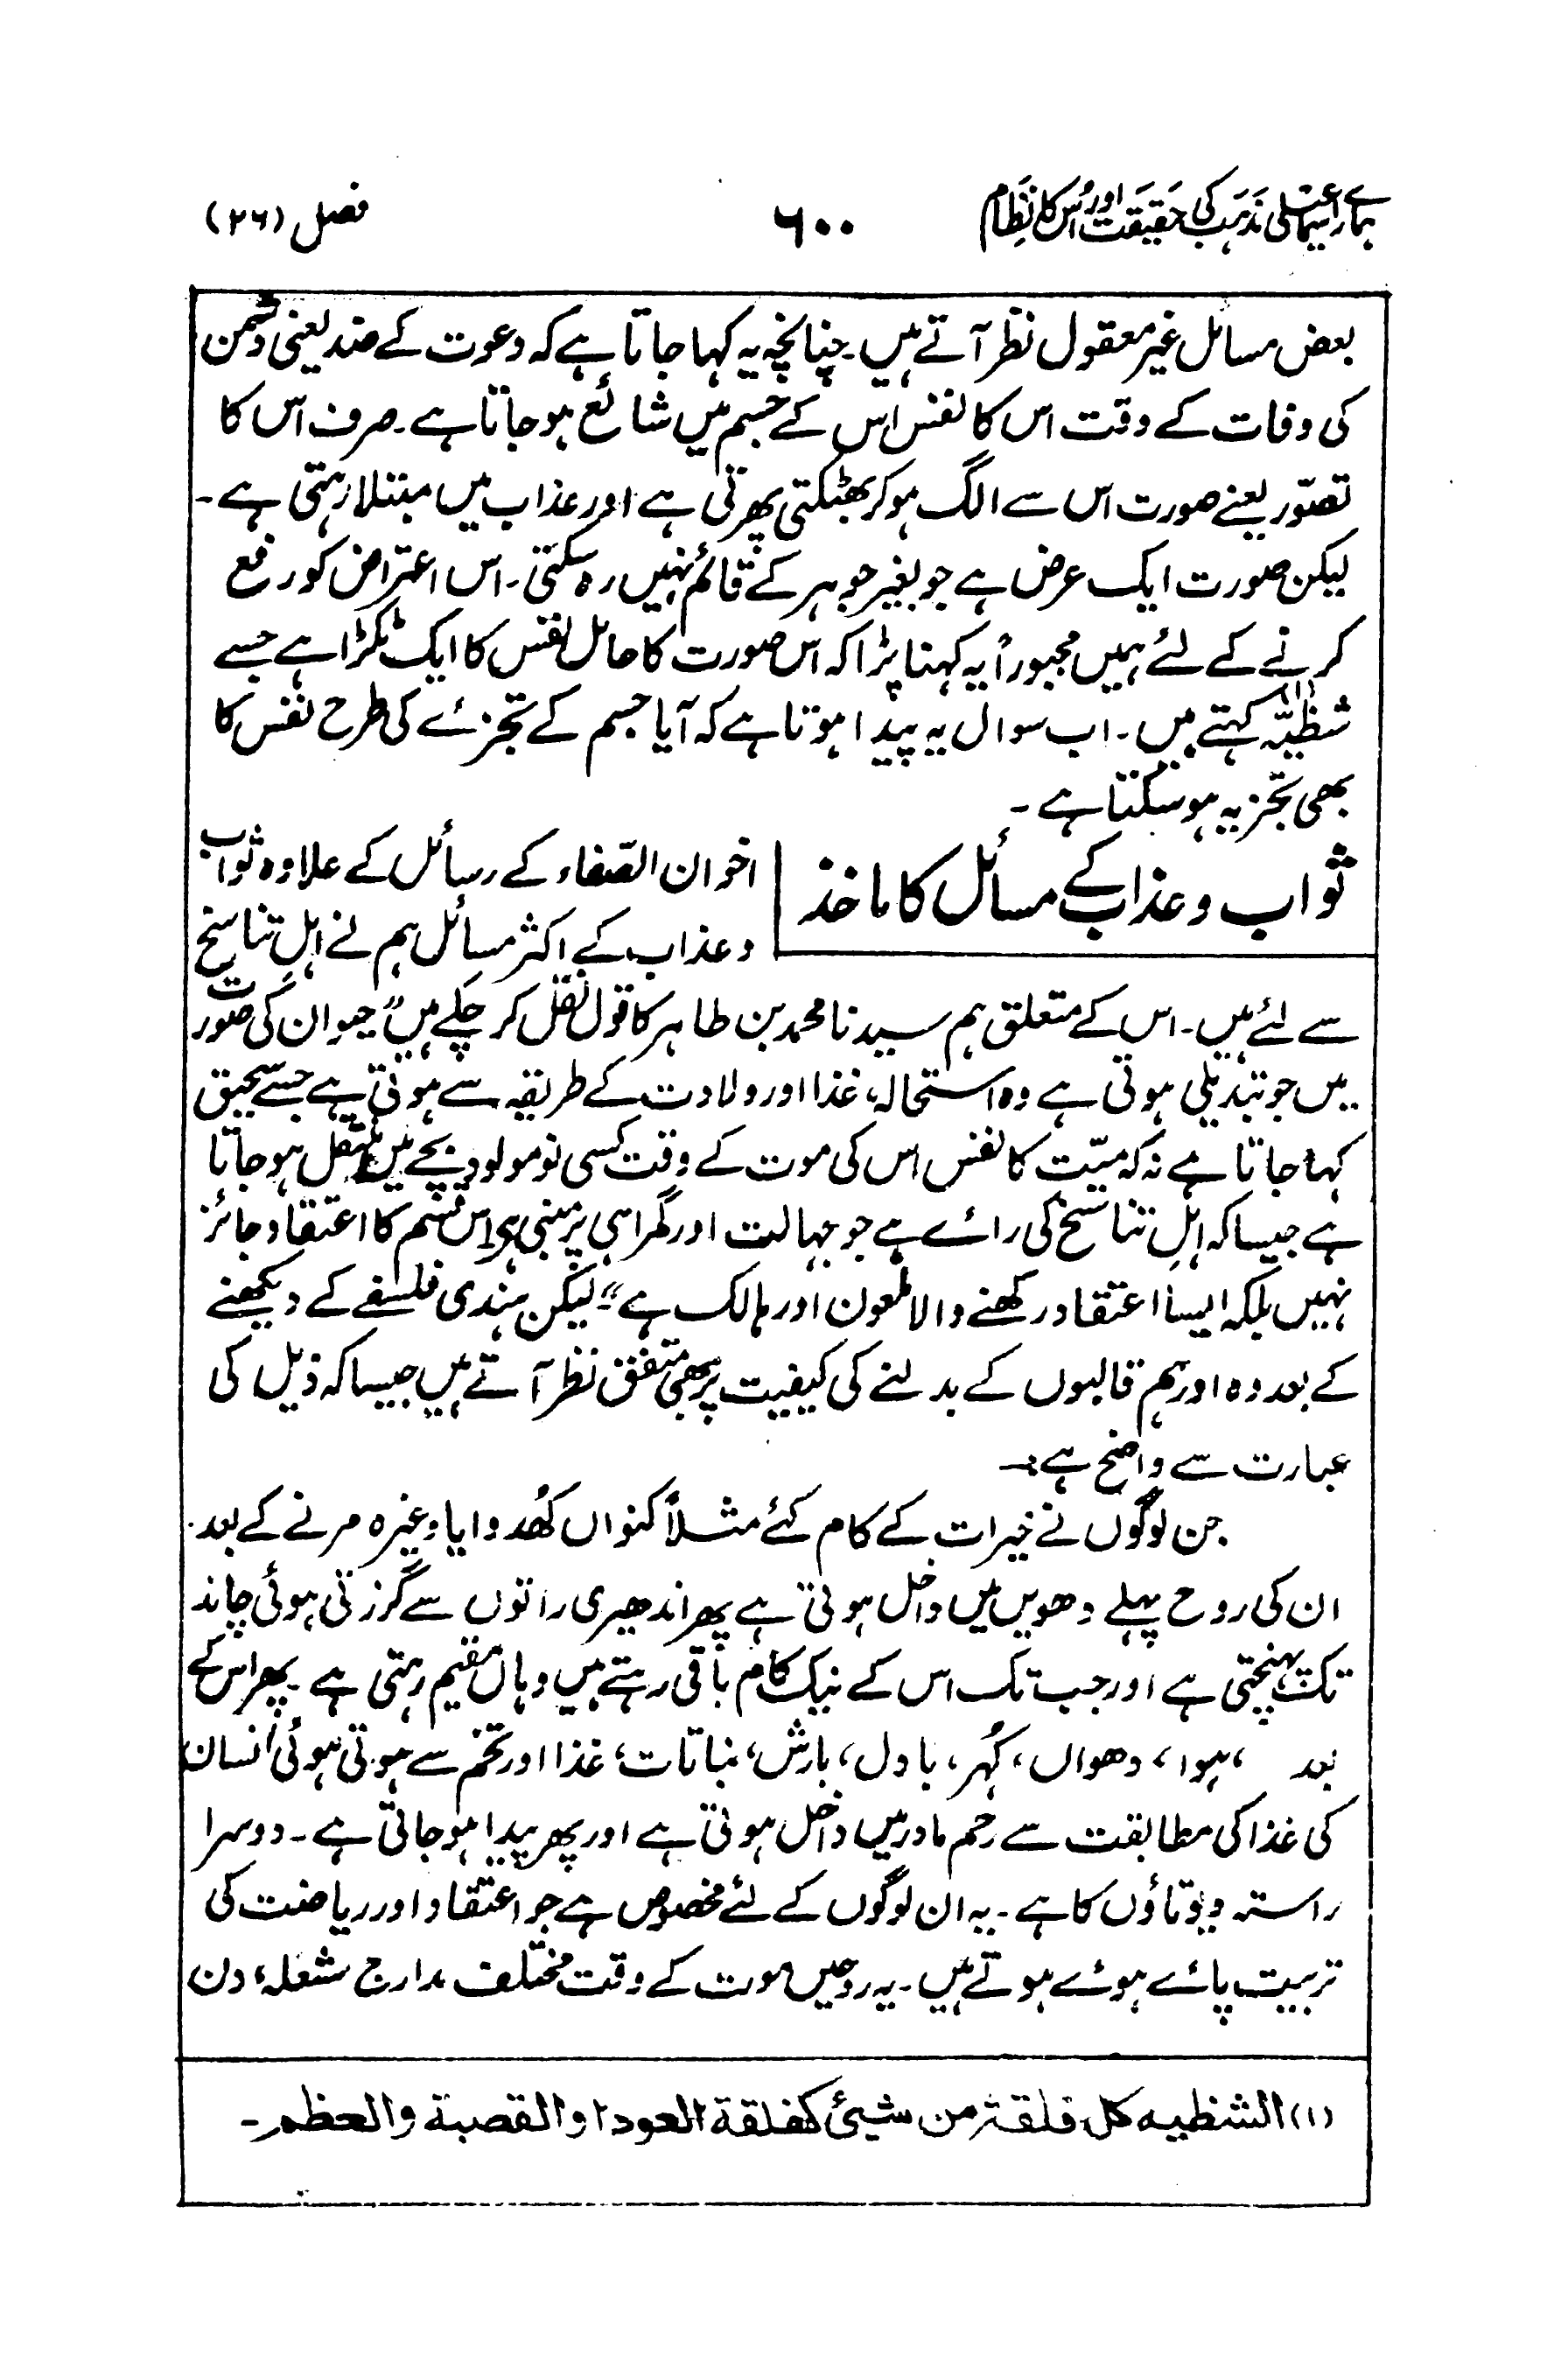 ہمارے اسماعیلی مذہب کی حقیقت اور اُس کا نظام
۶۰۰
فصل (۲۶)
بعض مسائل غیر معقول نظر آتے ہیں۔ چنانچہ یہ کہا جاتا ہے کہ دعوت کے ضد یعنی دشمن
کی وفات کے وقت اس کا نفس اس کے جسم میں شائع ہو جاتا ہے۔ صرف اس کا
تصوّر یعنے صورت اس سے الگ ہو کر بھٹکتی پھرتی ہے اور عذاب میں مبتلا رہتی ہے۔
لیکن صورت ایک عرض ہے جو بغیر جوہر کے قائم نہیں رہ سکتی۔ اس اعتراض کو رفع
کرنے کے لئے ہمیں مجبوراً یہ کہنا پڑا کہ اس صورت کا حامل نفس کا ایک ٹکڑا ہے جسے
شظیّہ (۱) کہتے ہیں۔ اب سوال یہ پیدا ہوتا ہے کہ آیا جسم کے تجزئے کی طرح نفس کا
بھی تجزیہ ہو سکتا ہے۔
ثواب و عذاب کے مسائل کا ماخذ
اخوان الصّفاء کے رسائل کے علاوہ ثواب
و عذاب کے اکثر مسائل ہم نے اہلِ تناسخ
سے لئے ہیں۔ اس کے متعلق ہم سیدنا محمد بن طاہر کا قول نقل کر چکے ہیں "حیوان کی صورت
میں جو تبدیلی ہوتی ہے وہ استحالہ، غذا اور ولادت کے طریقہ سے ہوتی ہے جسے سحیق
کہا جاتا ہے نہ کہ میّت کا نفس اس کی موت کے وقت کسی نو مولود بچے میں منتقل ہو جاتا
ہے جیسا کہ اہلِ تناسخ کی رائے ہے جو جہالت اور گمراہی پر مبنی ہے۔ اس قسم کا اعتقاد جائز
نہیں بلکہ ایسا اعتقاد رکھنے والا ملعون اور ہالک ہے"۔ لیکن ہندی فلسفے کے دیکھنے
کے بعد وہ اور ہم قالبوں کے بدلنے کی کیفیت پر بھی متفق نظر آتے ہیں جیسا کہ ذیل کی
عبارت سے واضح ہے:۔
جن لوگوں نے خیرات کے کام کئے مثلاً کنواں کُھدوایا وغیرہ مرنے کے بعد
ان کی روح پہلے دھویں میں داخل ہوتی ہے پھر اندھیری راتوں سے گزرتی ہوئی چاند
تک پہنچتی ہے اور جب تک اس کے نیک کام باقی رہتے ہیں وہاں مقیم رہتی ہے۔ پھر اس کے
بعد ، ہوا، دھواں، کُہر، بادل، بارش، نباتات، غذا اور تخم سے ہوتی ہوئی انسان
کی غذا کی مطابقت سے رحم مادر میں داخل ہوتی ہے اور پھر پیدا ہو جاتی ہے۔ دوسرا
راستہ دیوتاؤں کا ہے۔ یہ ان لوگوں کے لئے مخصوص ہے جو اعتقاد اور ریاضت کی
تربیت پائے ہوئے ہوتے ہیں۔ یہ روحیں موت کے وقت مختلف مدارج شعلہ، دن
(۱) الشظیہ کل فلقۃ من شیئ کفلقۃ العود او القصبۃ والعظم۔